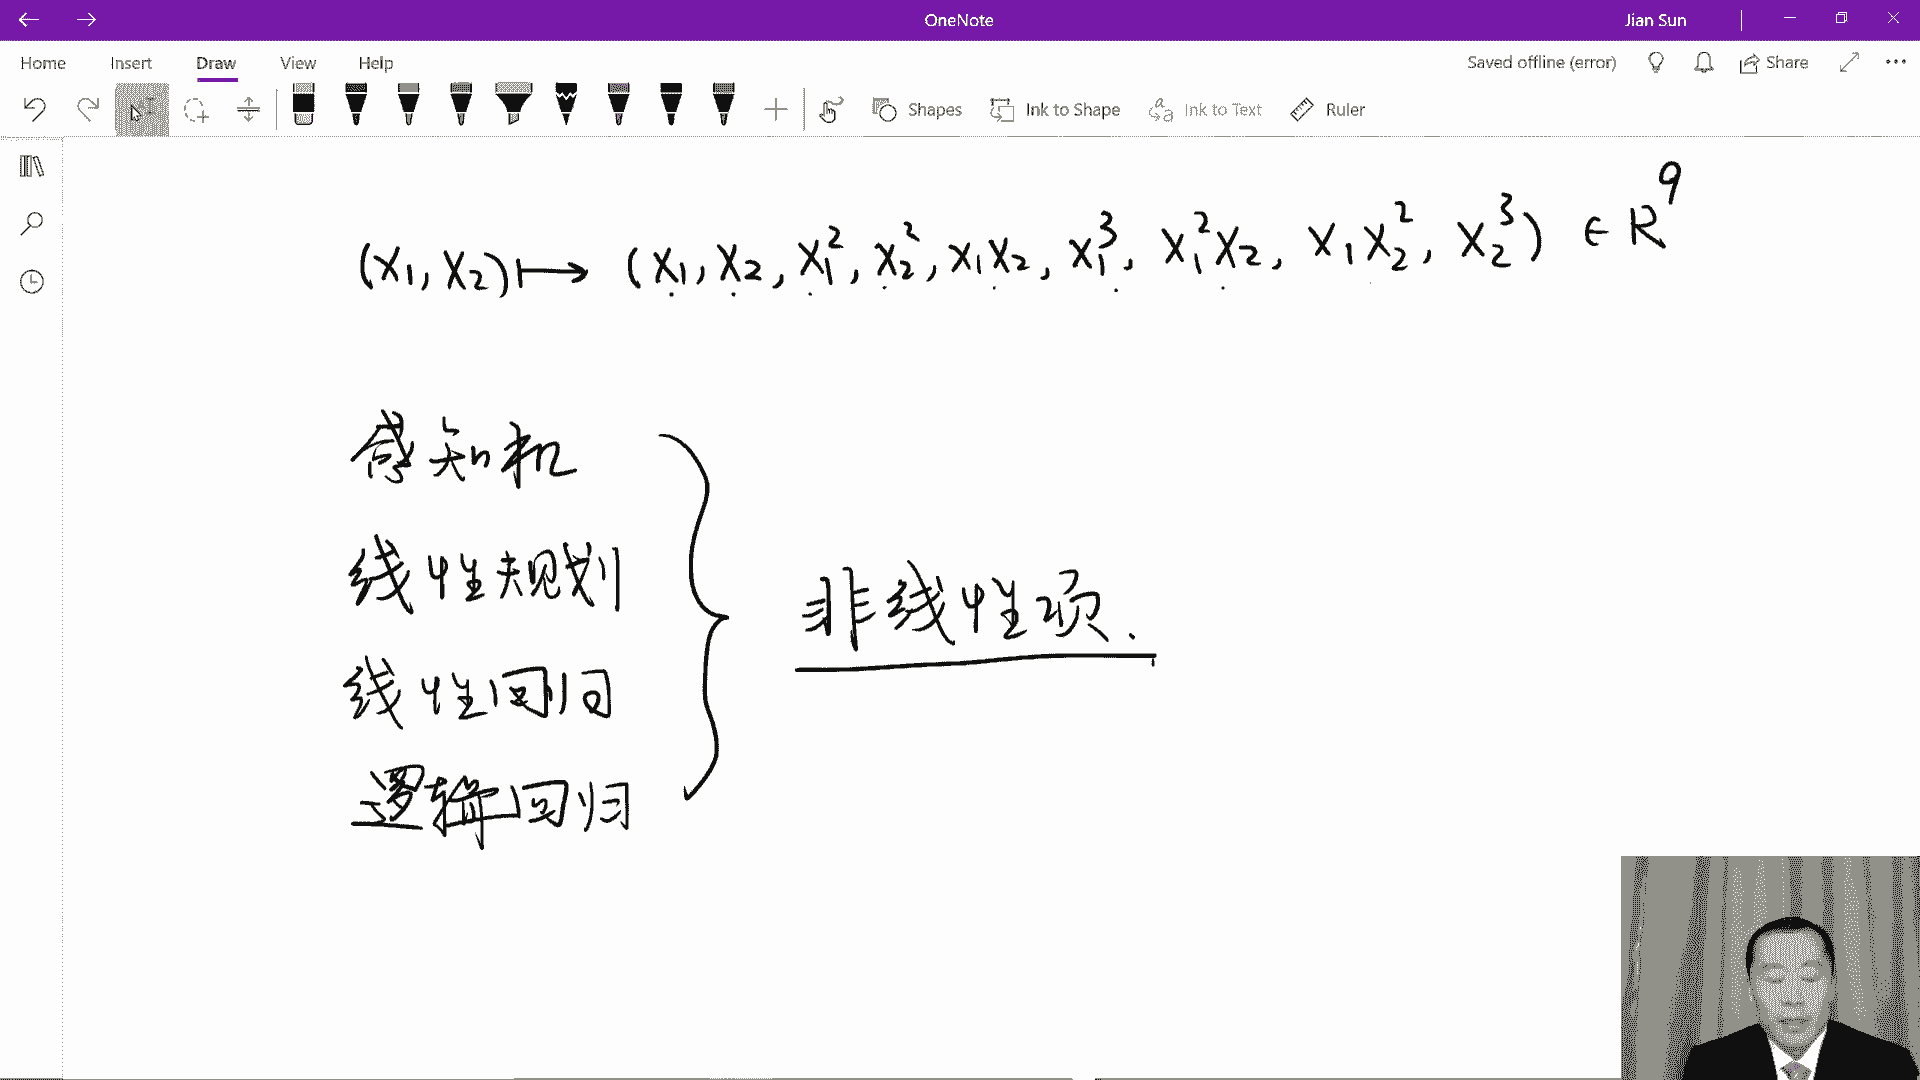 OneNote
Jian Sun
Home Insert Draw View Help
Saved offline (error) Share
Shapes Ink to Shape Ink to Text Ruler
(x₁, x₂) ↦ (x₁, x₂, x₁², x₂², x₁x₂, x₁³, x₁²x₂, x₁x₂², x₂³) ∈ R⁹
感知机
线性规划
非线性项.
线性回归
逻辑回归